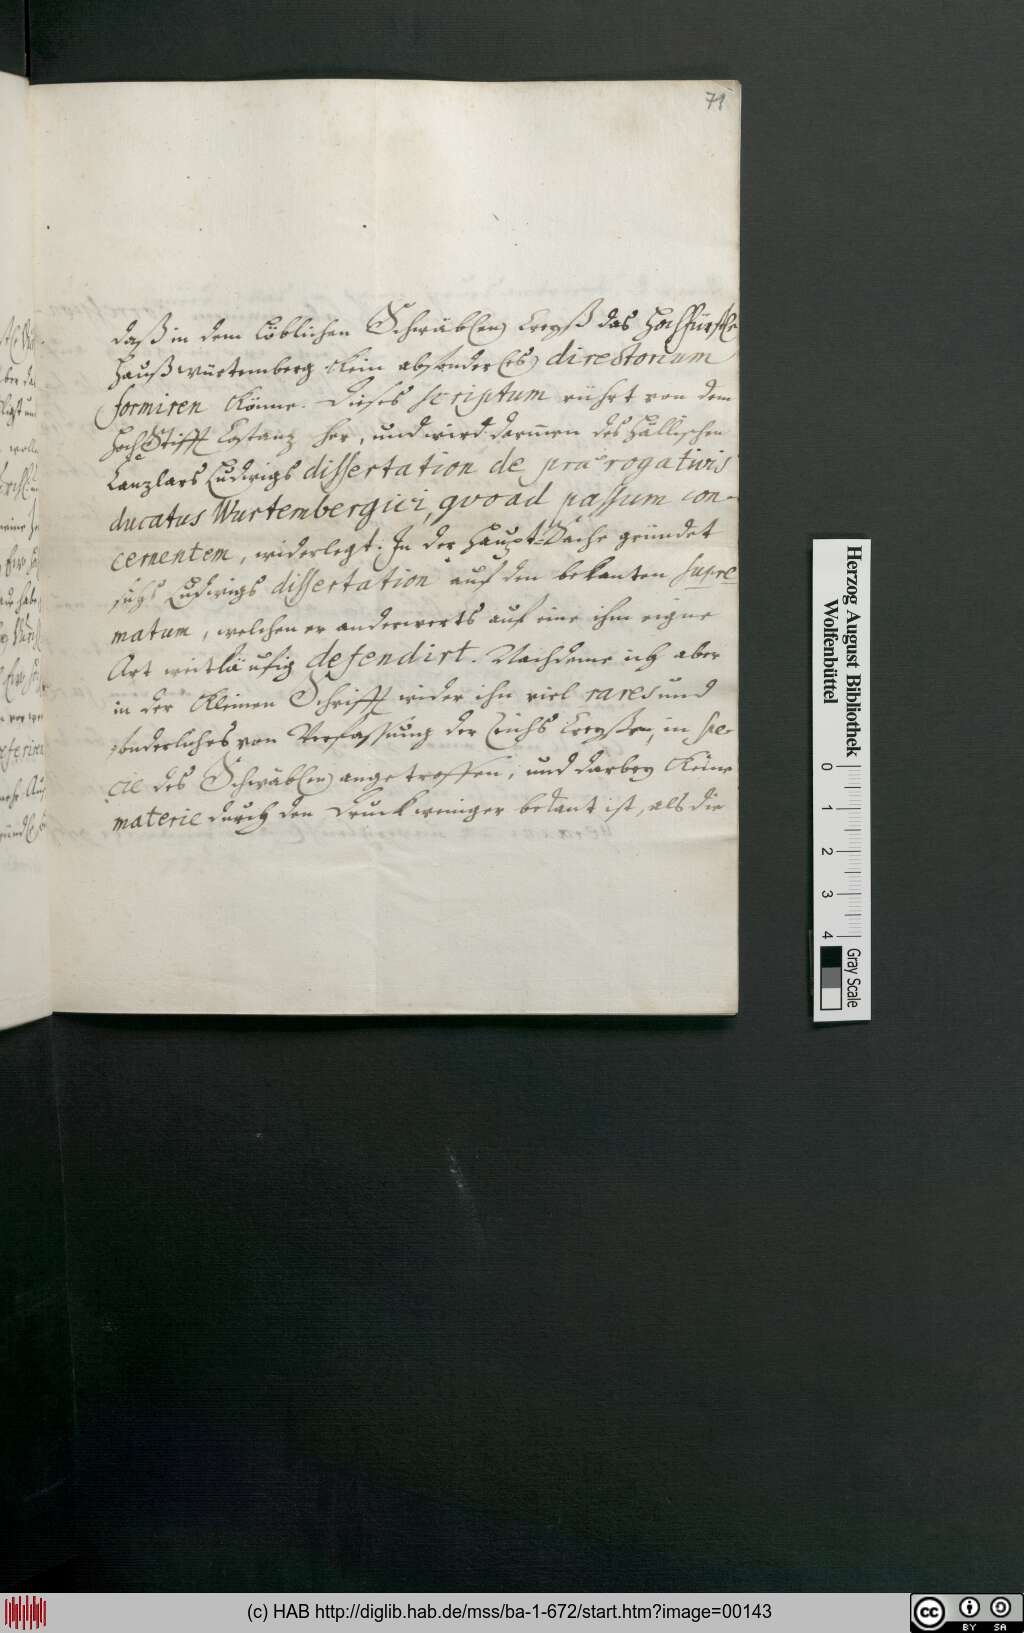 71
daß in dem löblichen Schwäb(en) Creyß das Hochfürstle
Hauß Würtemberg kein absonder(es) directorium
formiren könne. Dieses scriptum rührt von dem
Hoch Stifft Costanz her, und wird darinnen des Hällischen
Canzlars Ludwigs dissertation de praerogativis
ducatus Wurtembergici, qvoad passum con-
cernentem, widerlegt. In der Haupt-Sache gründet
sich Ludwigs dissertation auf den bekanten supre
matum, welchen er anderwerts auf eine ihm eigne
Art weitläufig defendirt. Nachdeme ich aber
in der kleinen Schrifft wider ihn viel rares und
sonderliches von Verfassung der Reichs Creyßen, in spe-
cie des Schwäb(en) angetroffen, und darbey keine
materie durch den Druck weniger bekant ist, als die
Herzog August Bibliothek
Wolfenbüttel
0 1 2 3 4
Gray Scale
(c) HAB http://diglib.hab.de/mss/ba-1-672/start.htm?image=00143
cc BY SA